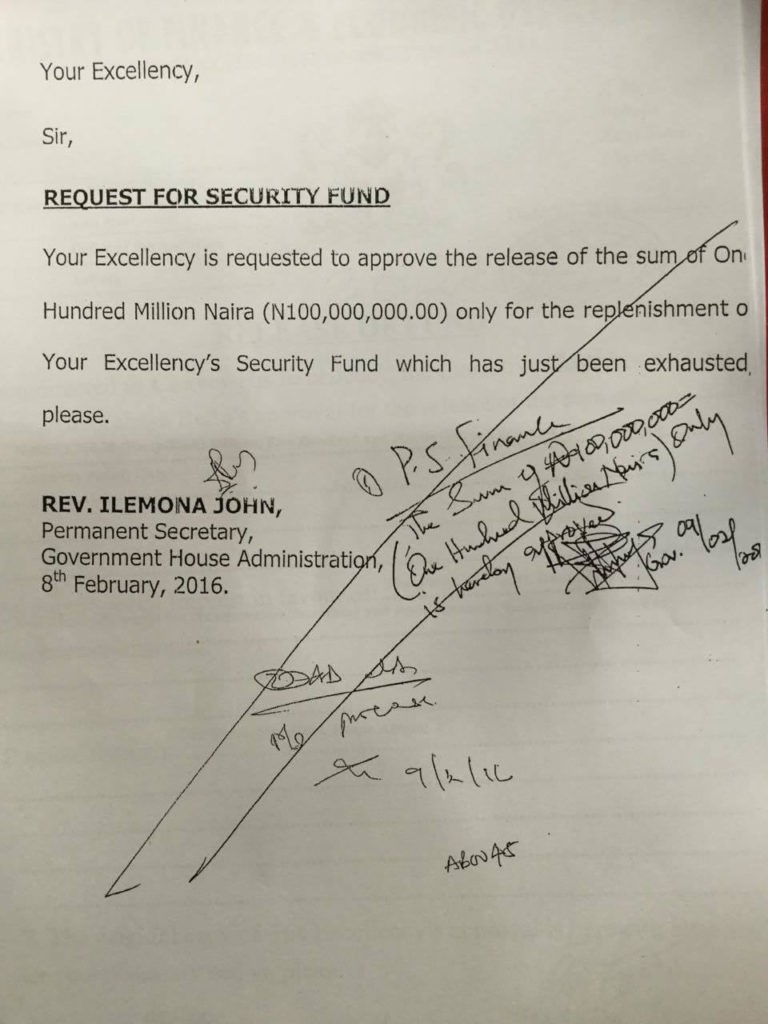 Your Excellency,
Sir,
REQUEST FOR SECURITY FUND
Your Excellency is requested to approve the release of the sum of On
Hundred Million Naira (N100,000,000.00) only for the replenishment o
Your Excellency's Security Fund which has just been exhausted,
please.
① P.S. Finance
The Sum of ₦100,000,000=
(One Hundred Million Naira) Only
is hereby approved.
Gov. 09/02/20
REV. ILEMONA JOHN,
Permanent Secretary,
Government House Administration,
8th February, 2016.
Pls process
9/2/16